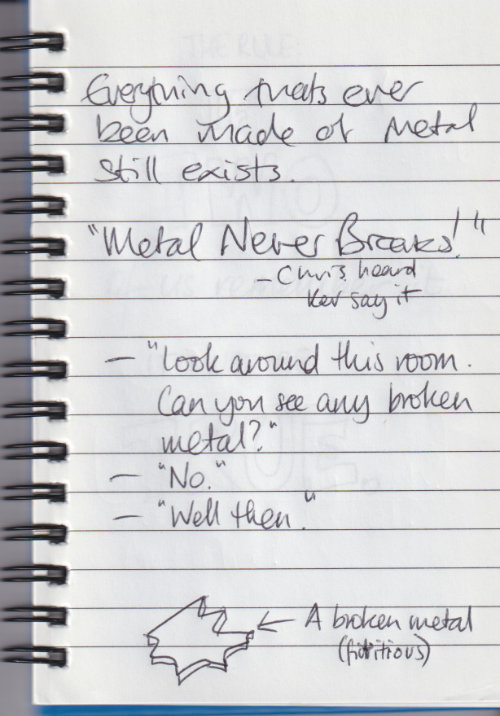 Everything thats ever
been made of metal
still exists.
"Metal Never Breaks!"
- Chris heard
Kev say it
- "Look around this room.
Can you see any broken
metal?"
- "No."
- "Well then."
← A broken metal
(fictitious)